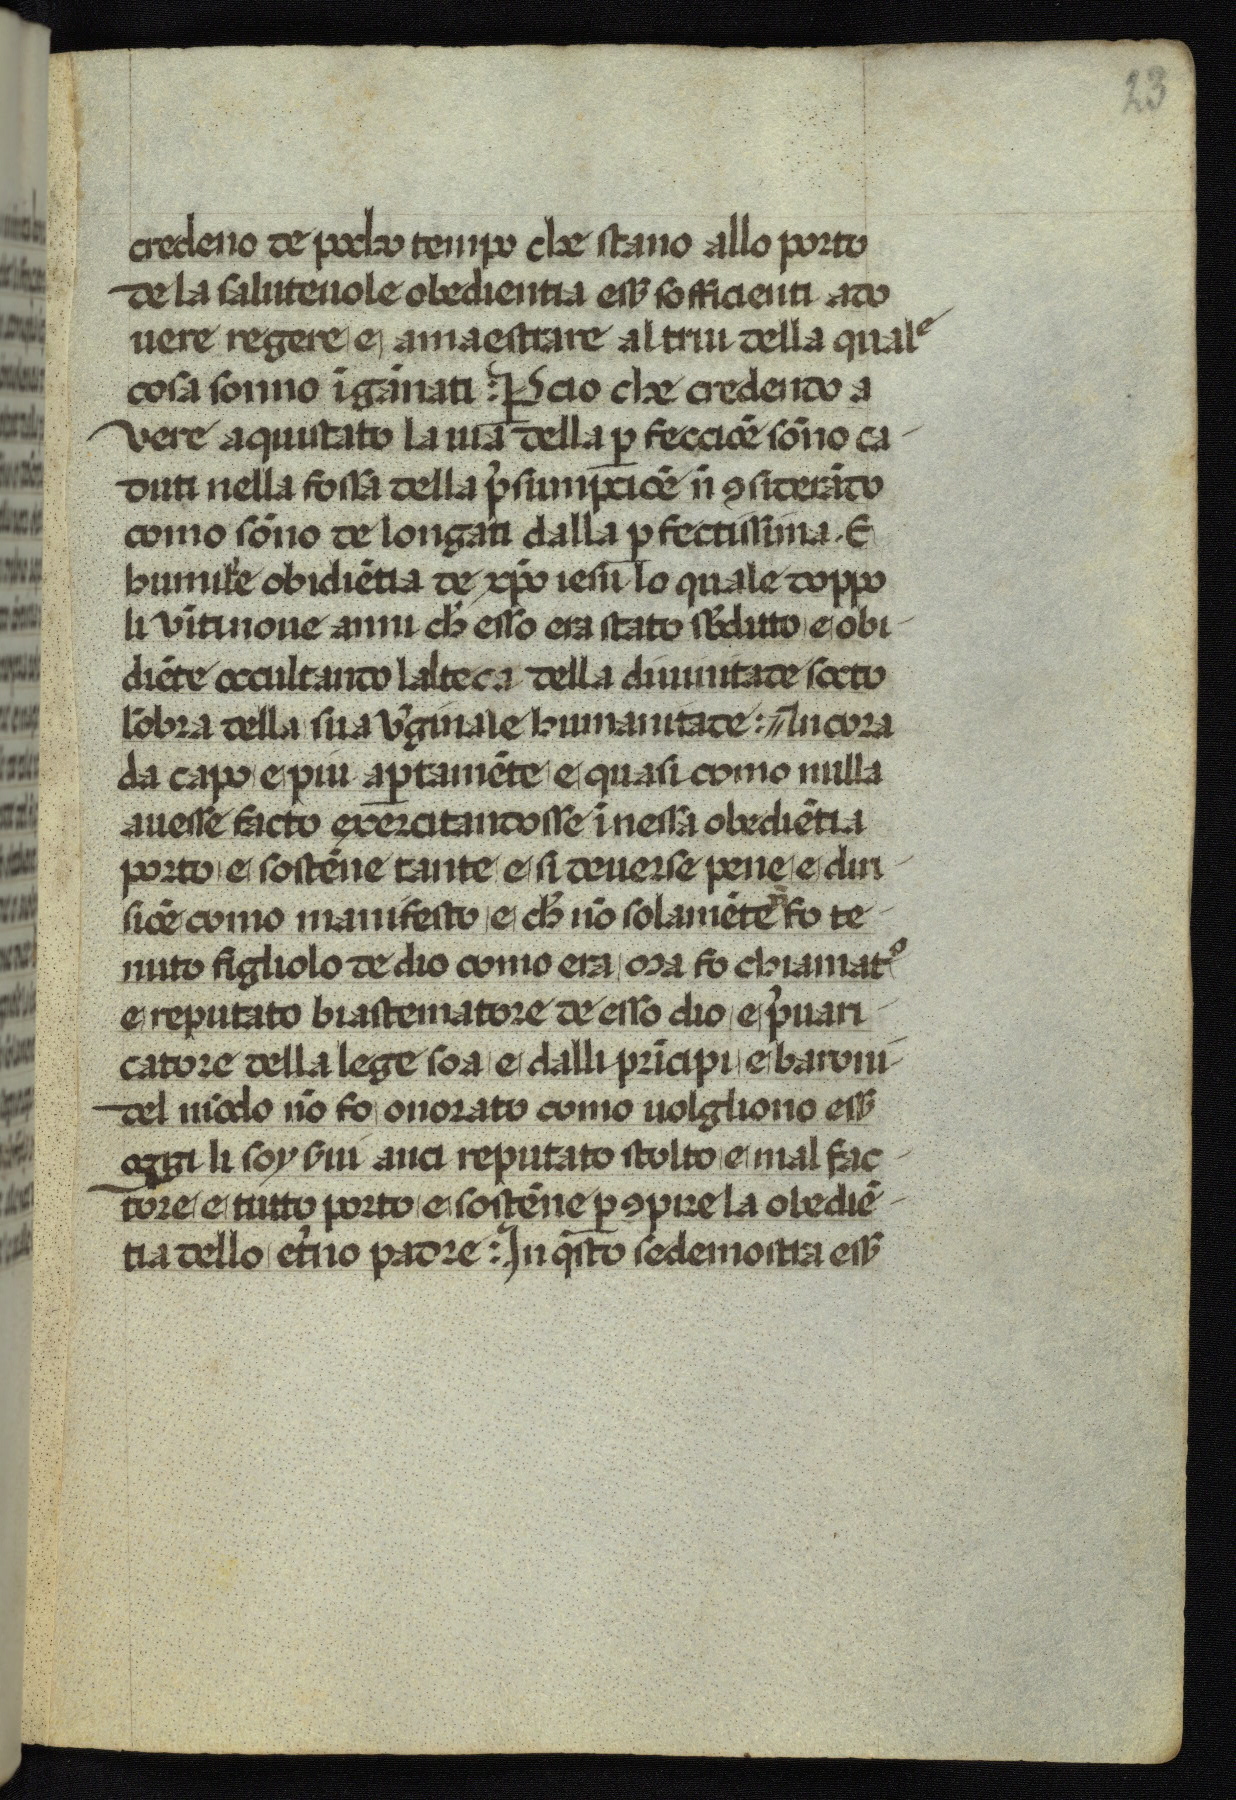 23
credeno de pocho tempo che stano allo porto
de la saluteuole obedientia ess̃ sofficienti ado
uere regere e amaestrare altrui della quale
cosa sonno īgānati : Ꝑcio che credendo a
vere aquistato la uia della ꝑfecciōe sōno ca-
duti nella fossa della p̄sumpciōe nō ꝯsiderādo
como sōno de longati dalla ꝑfectissima. E
humile obidiētia de xp̄o iesū lo quale doppo
li vītinoue anni ch̄ esso era stato sb̄dutto e obi-
diēte occultando lalteca della diuinitade socto
lōbra della sua v̄ginale humanitade : // Ancora
da capo e piu aꝑtamēte e quasi como nulla
auesse facto exercitandosse īnessa obediētia
porto e sostēne tante e si deuerse pene e diri-
siōe como manifesto e ch̄ nō solamēte nō fo te-
nuto figliolo de dio como era ma fo chiamato
e reputato biastematore de esso dio e p̄uari-
catore della lege soa e dalli prīcipi e baroni
del mōdo nō fo onorato como uolgliono ess̃
oggi li soy s̄ui anci reputato stolto e mal fac-
tore e tutto porto e sostēne ꝑ ꝯpire la obediē-
tia dello et̄no padre : In q̄sto se demostra ess̃